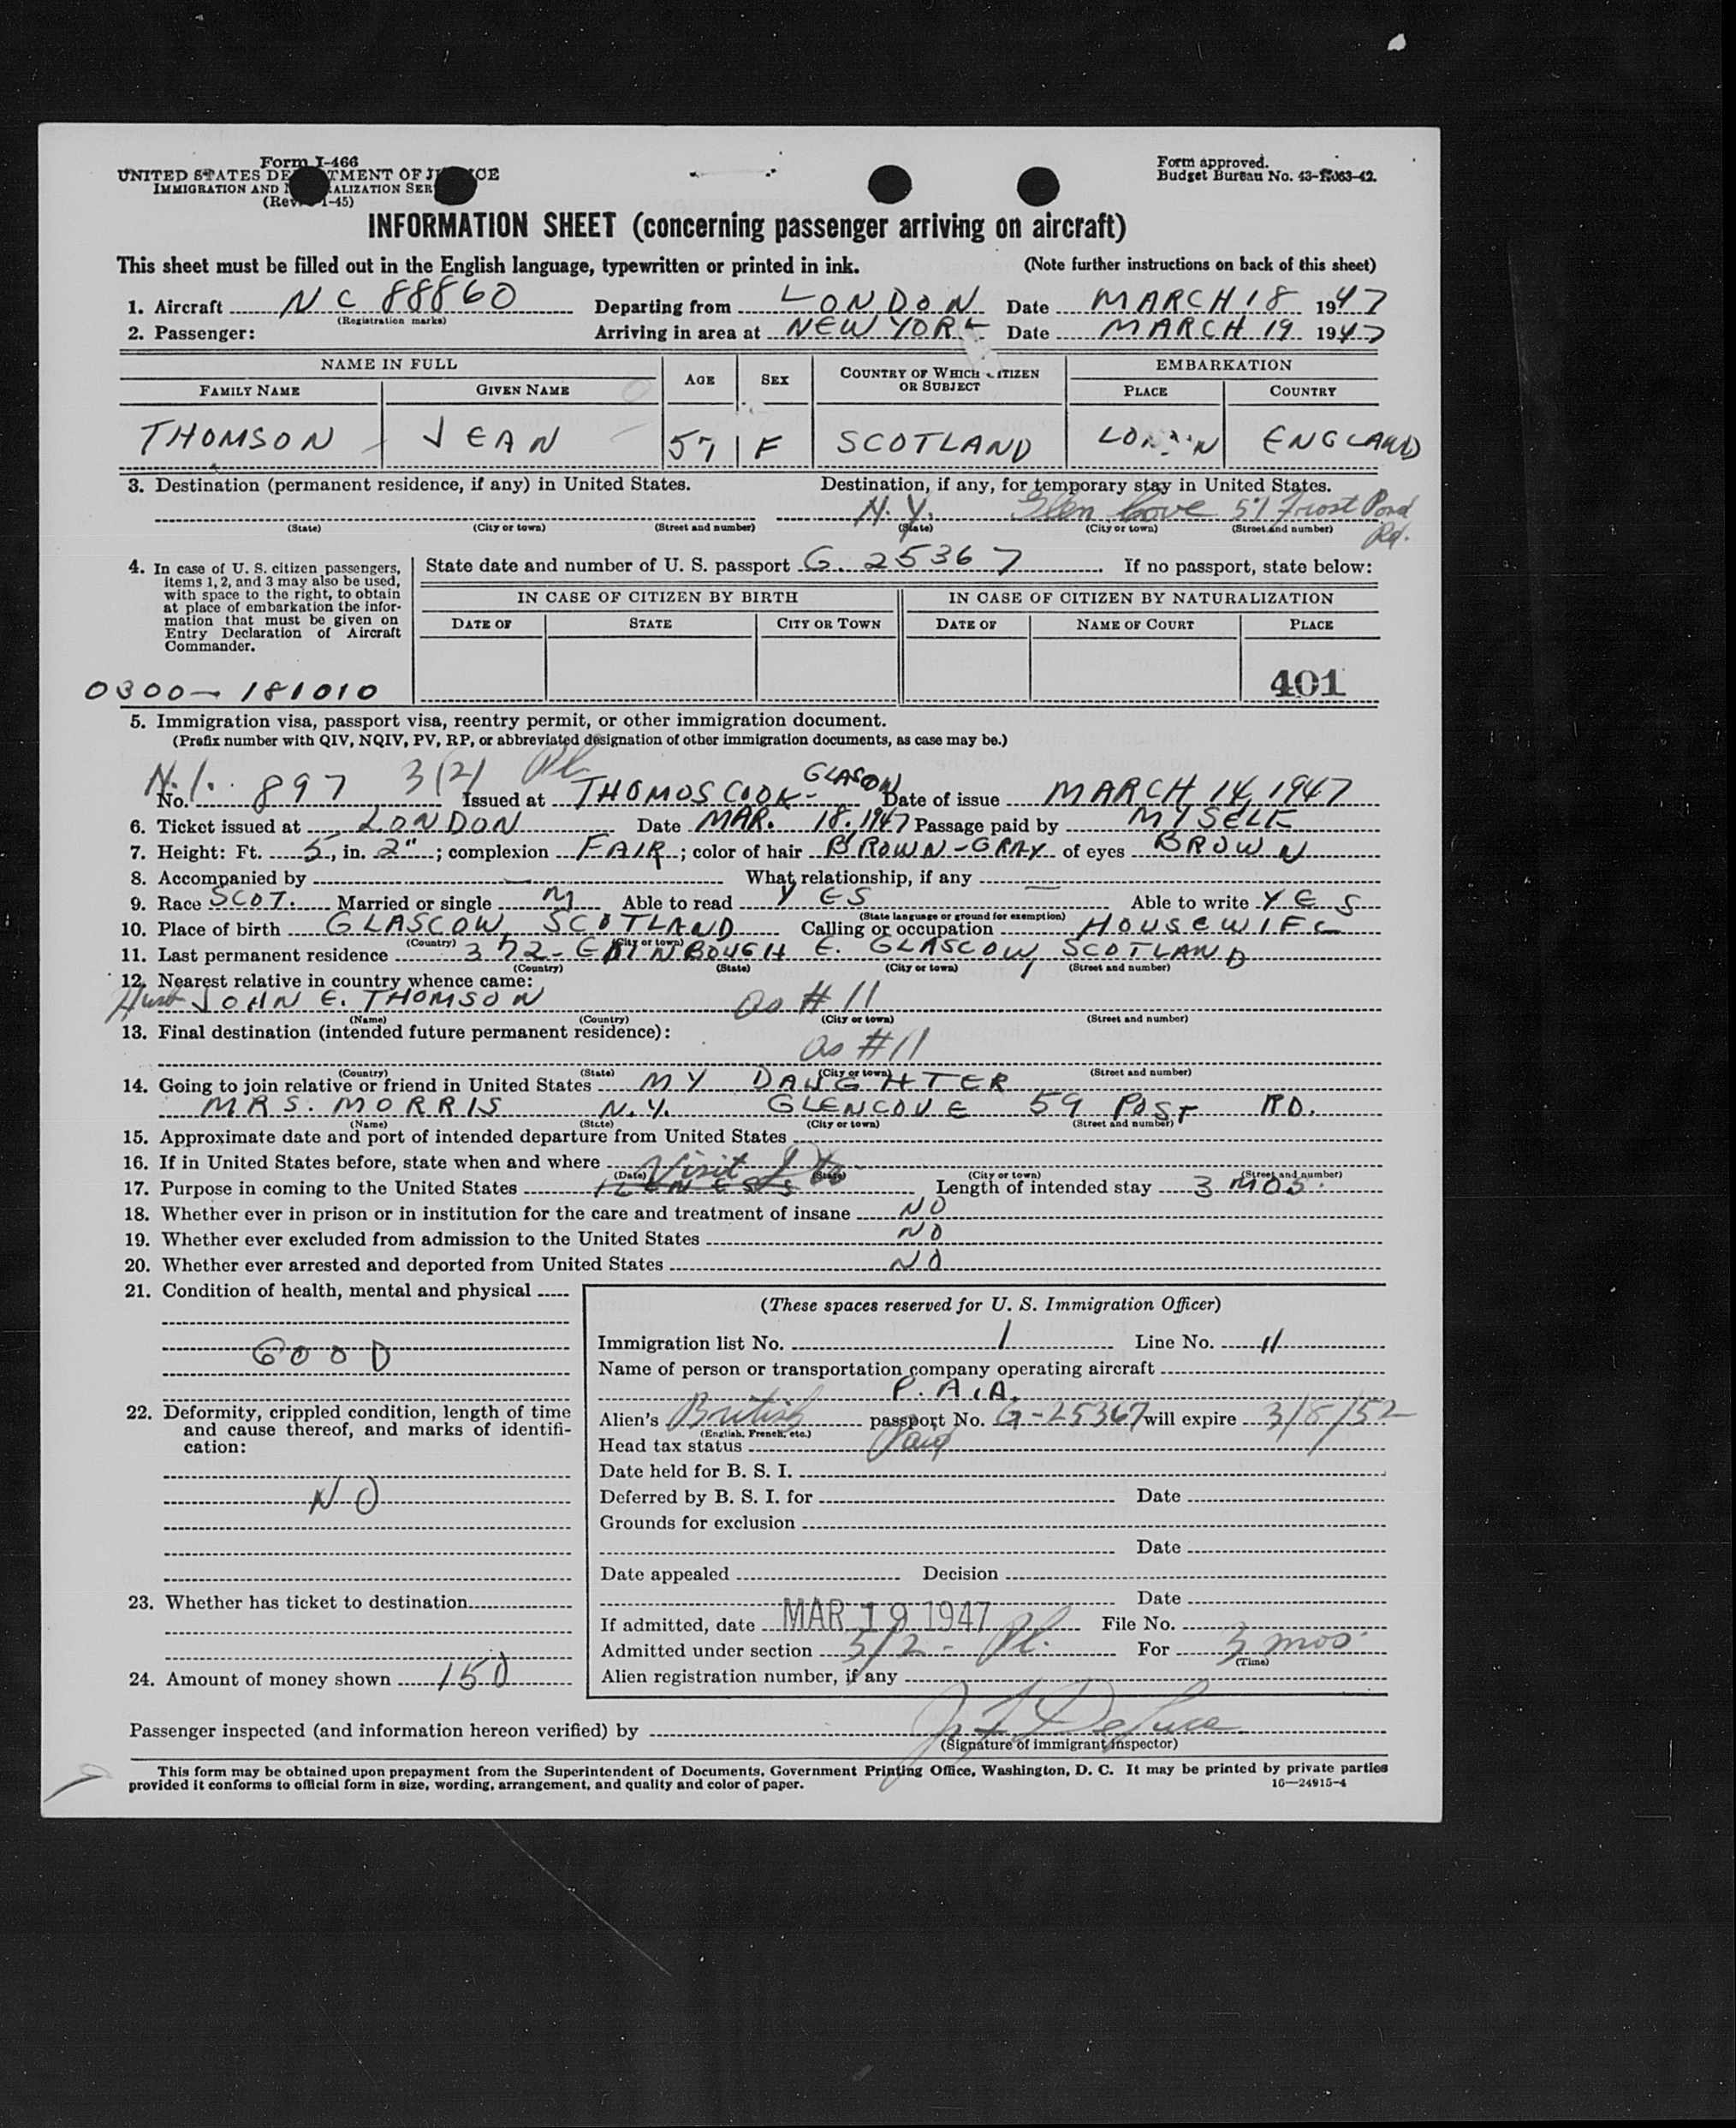 Form I-466
UNITED STATES DE TMENT OF J CE
IMMIGRATION AND ALIZATION SER
(Rev. 1-45)
Form approved.
Budget Bureau No. 43-R063-42.
INFORMATION SHEET (concerning passenger arriving on aircraft)
This sheet must be filled out in the English language, typewritten or printed in ink. (Note further instructions on back of this sheet)
1. Aircraft NC 88860 Departing from LONDON Date MARCH 18 1947
(Registration marks)
2. Passenger: Arriving in area at NEW YORK Date MARCH 19 1947
NAME IN FULL AGE SEX COUNTRY OF WHICH CITIZEN OR SUBJECT EMBARKATION
FAMILY NAME GIVEN NAME PLACE COUNTRY
THOMSON JEAN 57 F SCOTLAND LONDON ENGLAND
3. Destination (permanent residence, if any) in United States. Destination, if any, for temporary stay in United States.
N.Y. Glen Cove 57 Frost Pond Rd.
(State) (City or town) (Street and number) (State) (City or town) (Street and number)
4. In case of U. S. citizen passengers, items 1, 2, and 3 may also be used, with space to the right, to obtain at place of embarkation the information that must be given on Entry Declaration of Aircraft Commander.
State date and number of U. S. passport G. 25367 If no passport, state below:
IN CASE OF CITIZEN BY BIRTH IN CASE OF CITIZEN BY NATURALIZATION
DATE OF STATE CITY OR TOWN DATE OF NAME OF COURT PLACE
0300-181010 401
5. Immigration visa, passport visa, reentry permit, or other immigration document.
(Prefix number with QIV, NQIV, PV, RP, or abbreviated designation of other immigration documents, as case may be.)
N.I. 3(2) Pl GLASCOW
No. 897 Issued at THOMOS COOK- Date of issue MARCH 14, 1947
6. Ticket issued at LONDON Date MAR. 18. 1947 Passage paid by MYSELF
7. Height: Ft. 5, in. 2"; complexion FAIR; color of hair BROWN-GRAY of eyes BROWN
8. Accompanied by — What relationship, if any —
9. Race SCOT. Married or single M Able to read YES Able to write YES
(State language or ground for exemption)
10. Place of birth GLASCOW, SCOTLAND Calling or occupation HOUSEWIFE
(Country) (City or town)
11. Last permanent residence 372- EDINBOUGH E. GLASCOW, SCOTLAND
(Country) (State) (City or town) (Street and number)
12. Nearest relative in country whence came:
Husb JOHN E. THOMSON as #11
(Name) (Country) (City or town) (Street and number)
13. Final destination (intended future permanent residence):
as #11
(Country) (State) (City or town) (Street and number)
14. Going to join relative or friend in United States MY DAUGHTER
MRS. MORRIS N.Y. GLENCOVE 59 POST RD.
(Name) (State) (City or town) (Street and number)
15. Approximate date and port of intended departure from United States
16. If in United States before, state when and where
(Date) (State) (City or town) (Street and number)
Visit
17. Purpose in coming to the United States Length of intended stay 3 MOS.
18. Whether ever in prison or in institution for the care and treatment of insane NO
19. Whether ever excluded from admission to the United States NO
20. Whether ever arrested and deported from United States NO
21. Condition of health, mental and physical
GOOD
22. Deformity, crippled condition, length of time and cause thereof, and marks of identification:
NO
23. Whether has ticket to destination
24. Amount of money shown 150
(These spaces reserved for U. S. Immigration Officer)
Immigration list No. 1 Line No. 11
Name of person or transportation company operating aircraft
P.A.A.
Alien's British passport No. G-25367 will expire 3/8/52
(English, French, etc.)
Head tax status Paid
Date held for B. S. I.
Deferred by B. S. I. for Date
Grounds for exclusion
Date
Date appealed Decision
Date
If admitted, date MAR 19 1947 File No.
Admitted under section 3/2 - Pl. For 3 mos.
(Time)
Alien registration number, if any
Passenger inspected (and information hereon verified) by
(Signature of immigrant inspector)
This form may be obtained upon prepayment from the Superintendent of Documents, Government Printing Office, Washington, D. C. It may be printed by private parties
provided it conforms to official form in size, wording, arrangement, and quality and color of paper. 16—24915-4